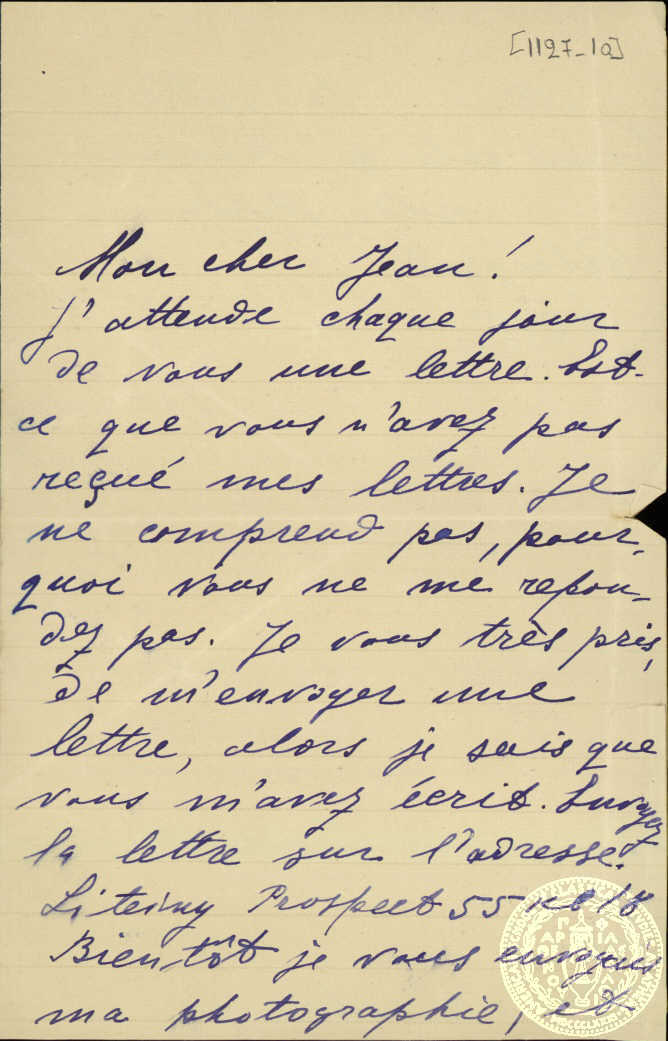 [1127-1a]
Mon cher Jean!
J'attende chaque jour
de vous une lettre. Est-
ce que vous n'avez pas
reçué mes lettres. Je
ne comprend pas, pour-
quoi vous ne me repon-
dez pas. Je vous très pris,
de m'envoyer une
lettre, alors je sais que
vous m'avez écrit. Envoyez
la lettre sur l'adresse.
Liteiny Prospect 55 
Bientôt je vous envoyais
ma photographie, et